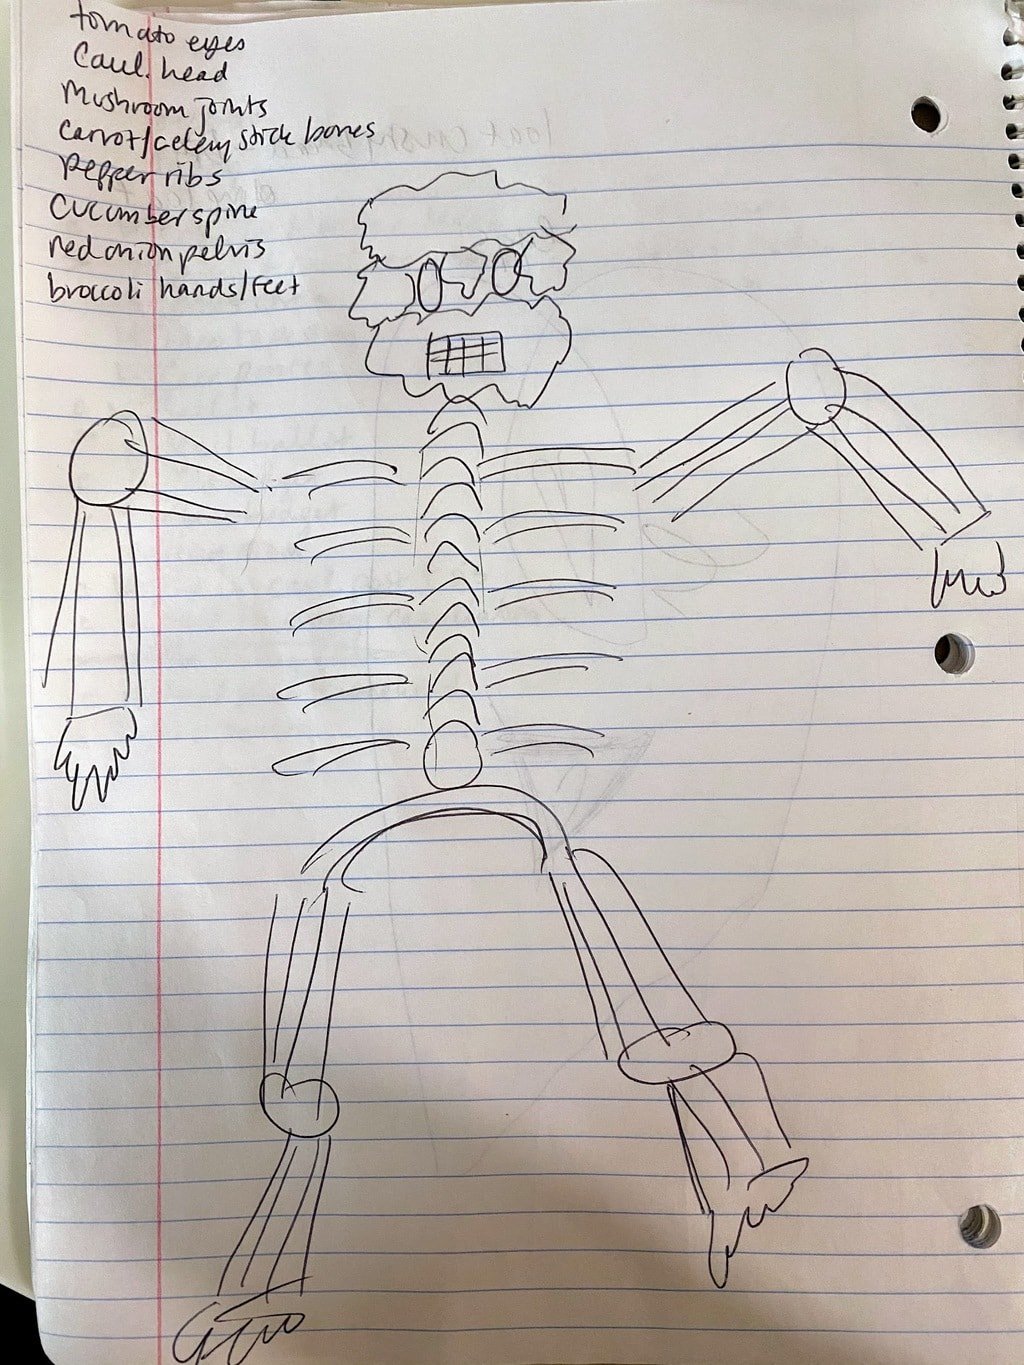 tomato eyes
Caul. head
Mushroom joints
carrot/celery stick bones
pepper ribs
cucumber spine
red onion pelvis
broccoli hands/feet